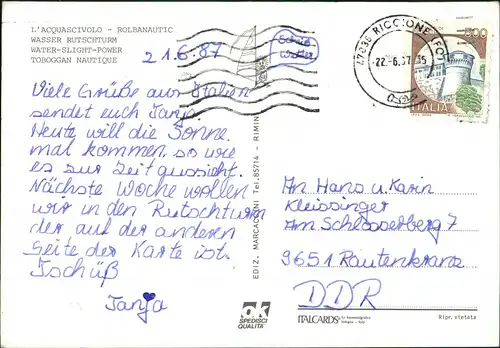 L'ACQUASCIVOLO - ROLBANAUTIC
WASSER RUTSCHTURM
WATER-SLIGHT-POWER
TOBOGGAN NAUTIQUE
21.6.87
Viele Grüße aus Italien
sendet euch Tanja.
Heute will die Sonne
mal kommen, so wie
es zur Zeit aussieht.
Nächste Woche wollen
wir in den Rutschturm
der auf der anderen
Seite der Karte ist.
Tschüß
Tanja
EDIZ. MARCACCINI Tel. 85714 - RIMINI
47036 RICCIONE (FO)
22.-6.87
500
ITALIA
An Hans u. Karin
Kleissinger
Am Schlosserberg 7
9651 Rautenkranz
DDR
ok
SPEDISCI
QUALITA'
ITALCARDS
bologna - italy
Ripr. vietata